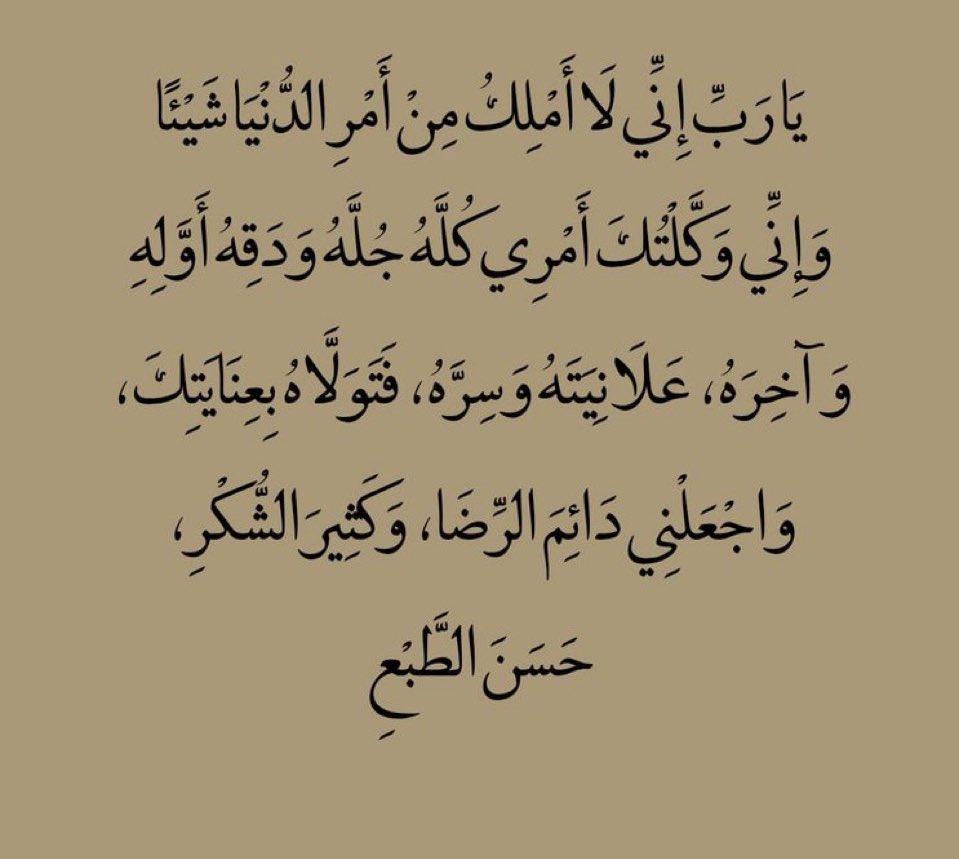 يَا رَبِّ إِنِّي لَا أَمْلِكُ مِنْ أَمْرِ الدُّنْيَا شَيْئًا
وَإِنِّي وَكَّلْتُكَ أَمْرِي كُلَّهُ جُلَّهُ وَدَقِهُ أَوَّلِهِ
وَ آخِرَهُ، عَلَانِيَتَهُ وَسِرَّهُ، فَتَوَلَّاهُ بِعِنَايَتِكَ،
وَاجْعَلْنِي دَائِمَ الرِّضَا، وَكَثِيرَ الشُّكْرِ،
حَسَنَ الطَّبْعِ